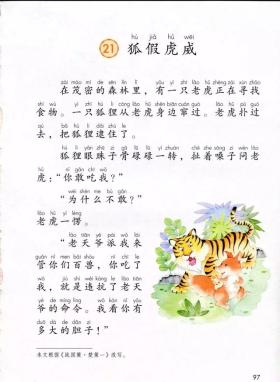 hú jiǎ hǔ wēi
21 狐假虎威
zài mào mì de sēn lín lǐ yǒu yì zhī lǎo hǔ zhèng zài xún zhǎo
在茂密的森林里，有一只老虎正在寻找
shí wù yì zhī hú li cóng lǎo hǔ shēn biān cuàn guò lǎo hǔ pū guò
食物。一只狐狸从老虎身边窜过。老虎扑过
qù bǎ hú li dǎi zhù le
去，把狐狸逮住了。
hú li yǎn zhū zi gū lù lù yí zhuàn chě zhe sǎng zi wèn lǎo
狐狸眼珠子骨碌碌一转，扯着嗓子问老
hǔ nǐ gǎn chī wǒ
虎：“你敢吃我？”
wèi shén me bù gǎn
“为什么不敢？”
lǎo hǔ yí lèng
老虎一愣。
lǎo tiān yé pài wǒ lái
“老天爷派我来
guǎn nǐ men bǎi shòu nǐ chī le
管你们百兽，你吃了
wǒ jiù shì wéi kàng le lǎo tiān
我，就是违抗了老天
yé de mìng lìng wǒ kàn nǐ yǒu
爷的命令。我看你有
duō dà de dǎn zi
多大的胆子！”
本文根据《战国策·楚策一》改写。
97